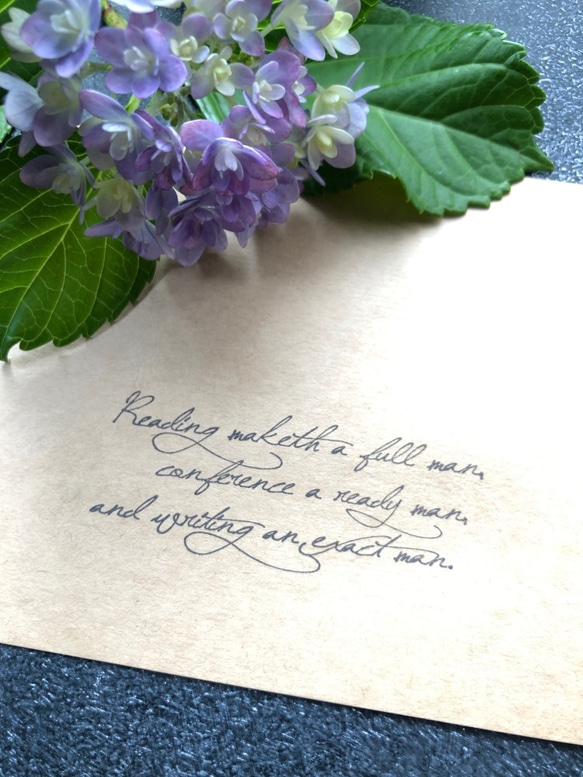 Reading maketh a full man,
conference a ready man,
and writing an exact man.